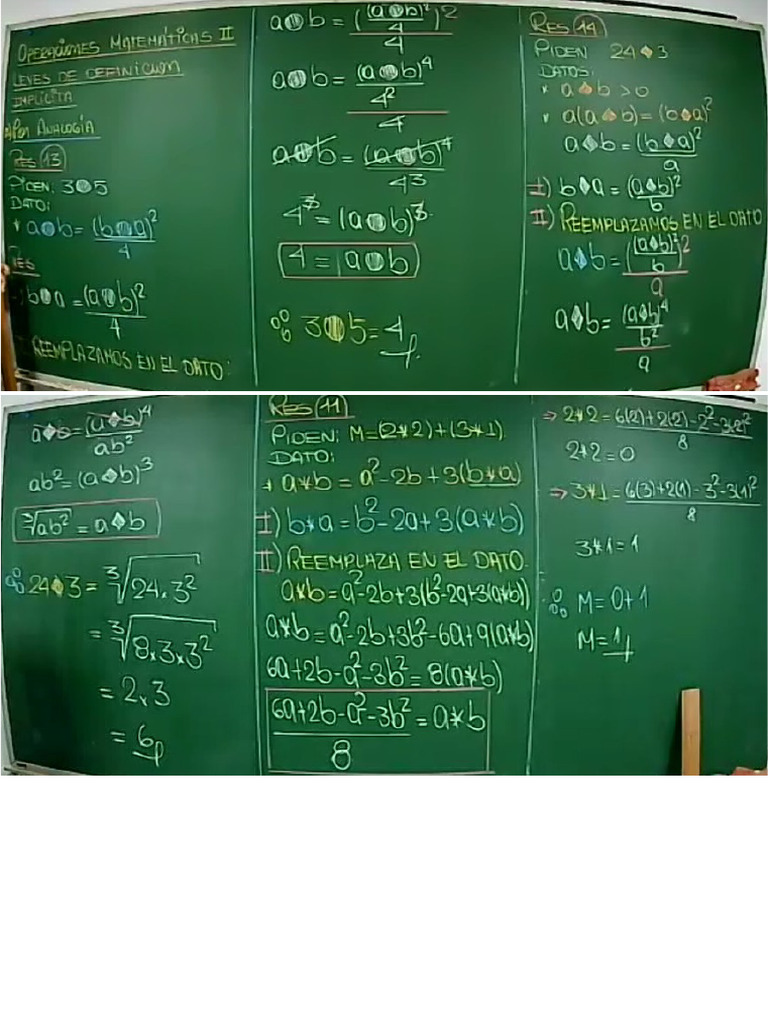 OPERACIONES MATEMÁTICAS II
LEYES DE DEFINICION
IMPLÍCITA
POR ANALOGÍA
RES (13)
PIDEN: 3●5
DATO:
* a●b = (b●a)²/4
RES
b●a = (a●b)²/4
REEMPLAZAMOS EN EL DATO:
a●b = ((a●b)²/4)²/4
a●b = (a●b)⁴/4²/4
a●b = (a●b)⁴/4³
4³ = (a●b)³
4 = a●b
∴ 3●5 = 4
RES (14)
PIDEN 24◆3
DATOS:
* a◆b > 0
* a(a◆b) = (b◆a)²
a◆b = (b◆a)²/a
I) b◆a = (a◆b)²/b
II) REEMPLAZAMOS EN EL DATO
a◆b = ((a◆b)²/b)²/a
a◆b = (a◆b)⁴/b²/a
a◆b = (a◆b)⁴/ab²
ab² = (a◆b)³
∛ab² = a◆b
∴ 24◆3 = ∛24.3²
= ∛8×3×3²
= 2×3
= 6
RES (11)
PIDEN: M=(2*2)+(3*1)
DATO:
* a*b = a²-2b+3(b*a)
I) b*a = b²-2a+3(a*b)
II) REEMPLAZA EN EL DATO.
a*b = a²-2b+3(b²-2a+3(a*b))
a*b = a²-2b+3b²-6a+9(a*b)
6a+2b-a²-3b² = 8(a*b)
6a+2b-a²-3b²/8 = a*b
⇒ 2*2 = 6(2)+2(2)-2²-3(2)²/8
2*2 = 0
⇒ 3*1 = 6(3)+2(1)-3²-3(1)²/8
3*1 = 1
∴ M = 0+1
M = 1